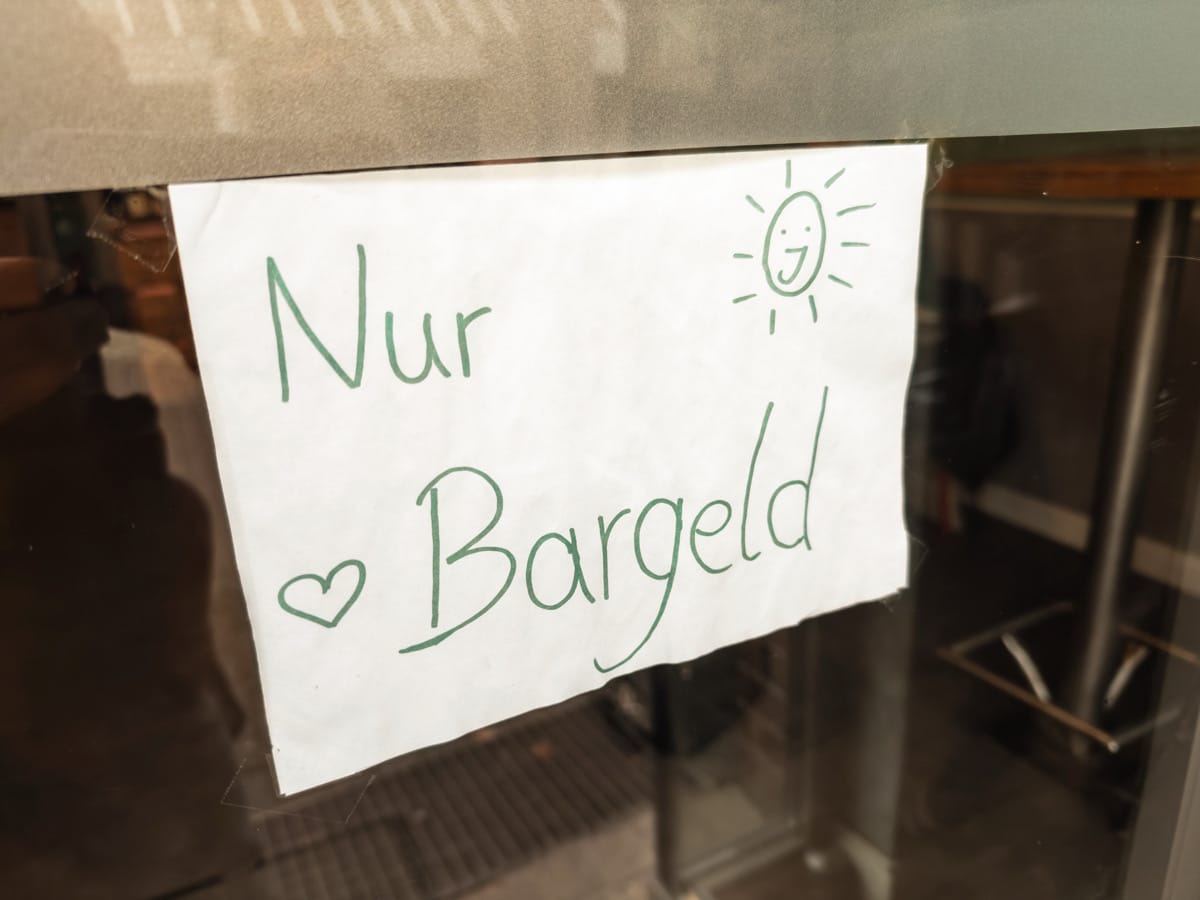 Nur
Bargeld